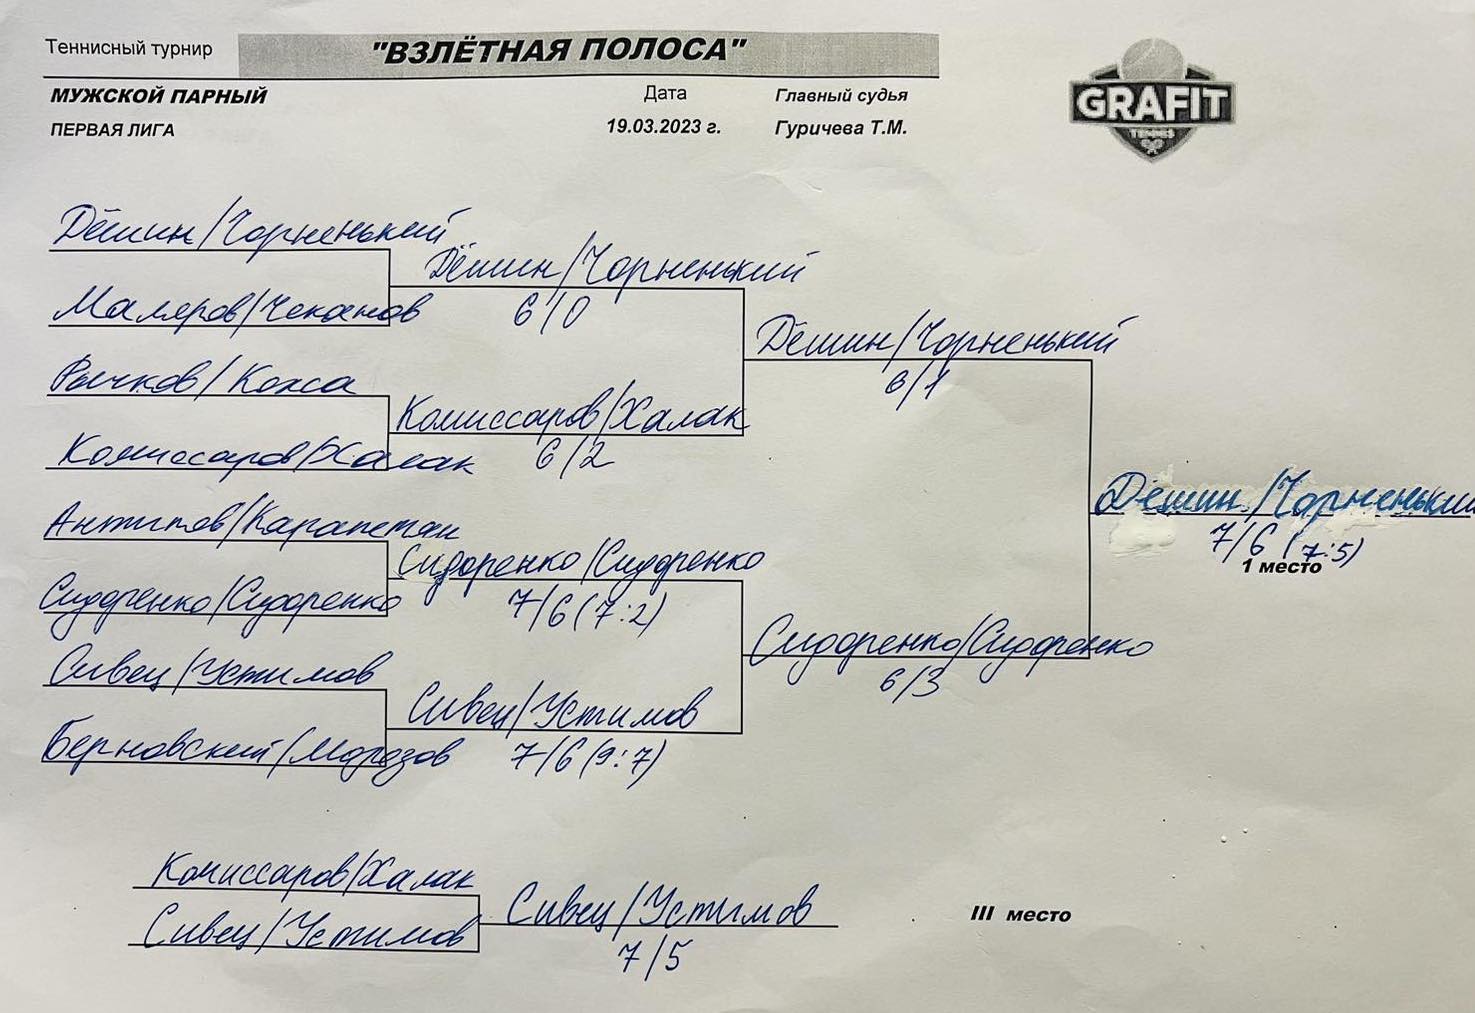 Теннисный турнир "ВЗЛЁТНАЯ ПОЛОСА"
МУЖСКОЙ ПАРНЫЙ Дата Главный судья
ПЕРВАЯ ЛИГА 19.03.2023 г. Гуричева Т.М.
GRAFIT
TENNIS
Дёмин/Чорненький
Дёмин/Чорненький
Маляров/Чеканов
6/0
Дёмин/Чорненький
6/1
Рычков/Кокса
Комиссаров/Халак
Комиссаров/Халак
6/2
Дёмин/Чорненький
7/6 (7:5)
1 место
Антипов/Карапетян
Сидоренко/Сидоренко
Сидоренко/Сидоренко
7/6 (7:2)
Сидоренко/Сидоренко
6/3
Сивец/Устимов
Сивец/Устимов
Берновский/Морозов
7/6 (9:7)
Комиссаров/Халак
Сивец/Устимов
III место
Сивец/Устимов
7/5